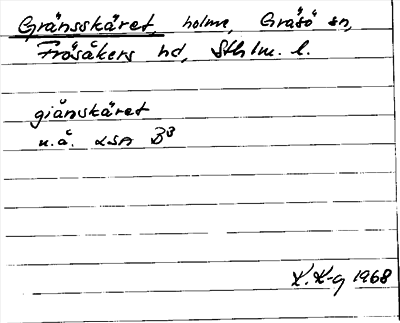 Gränsskäret, holme, Gräsö sn,
Frösåkers hd, Sthlm. l.
gränskäret
u.å. LSA B3
K.K-g 1968